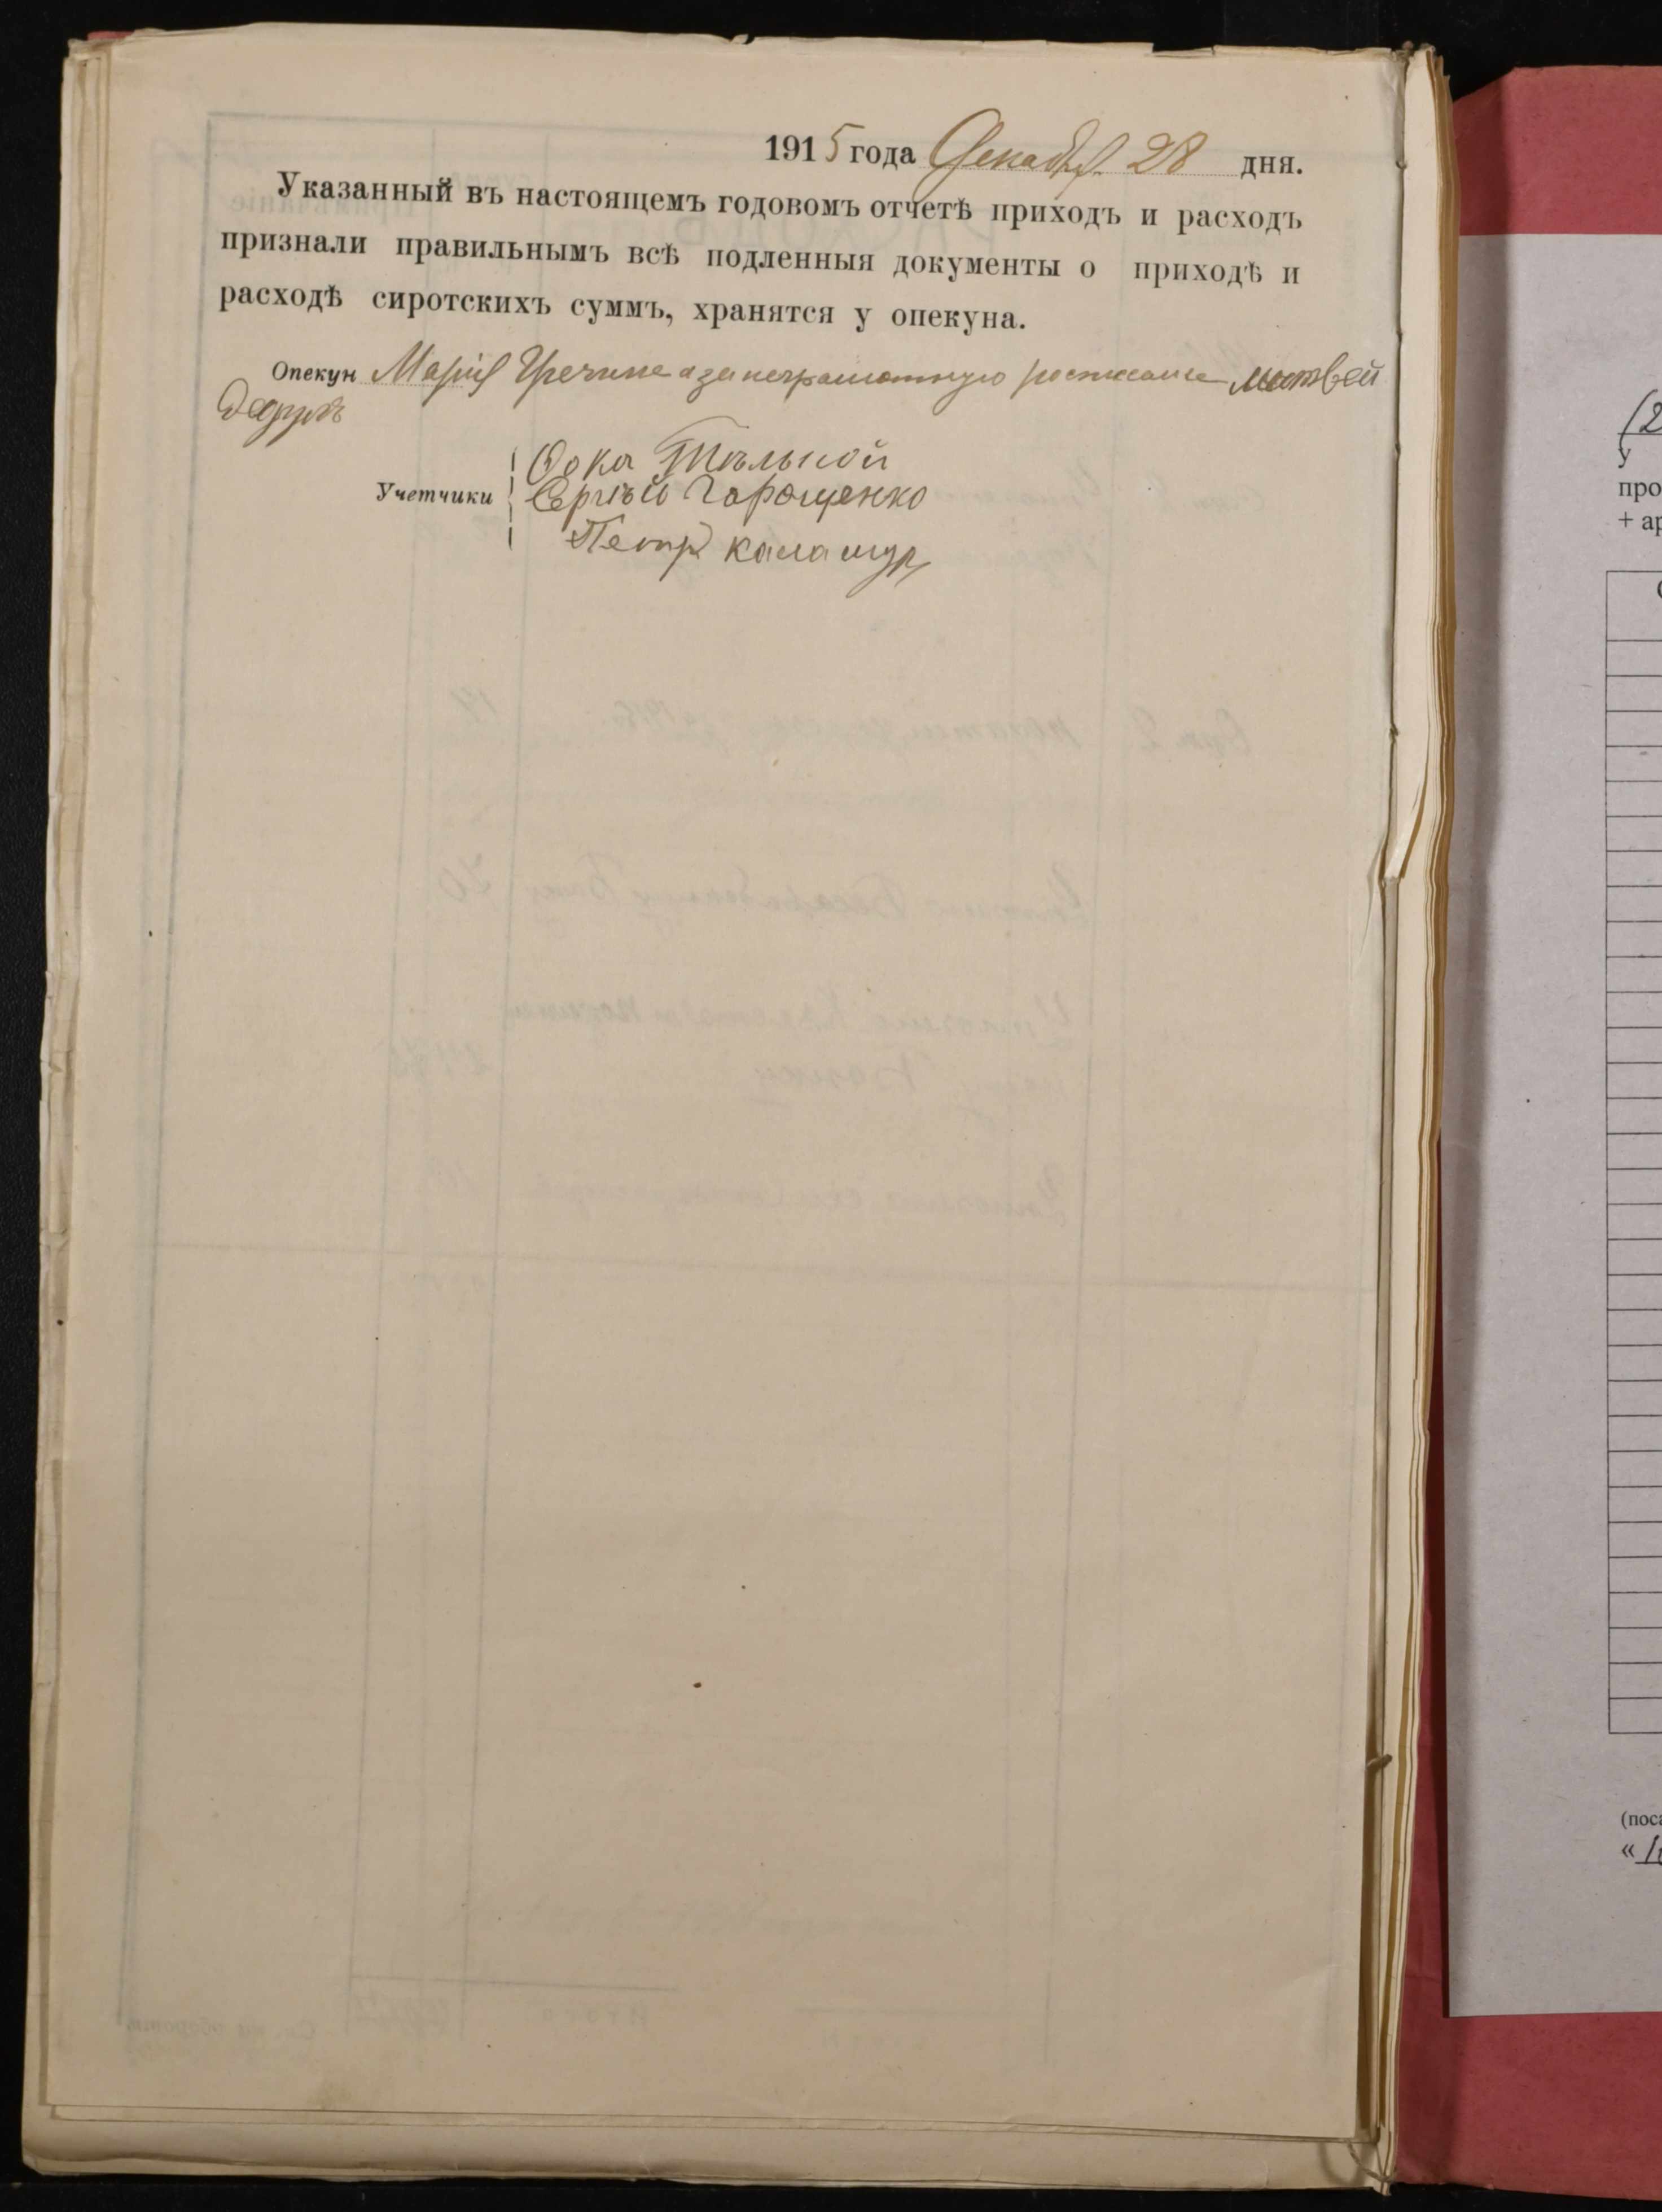 1915 года Декабря 28 дня.
Указанный въ настоящемъ годовомъ отчетѣ приходъ и расходъ
признали правильнымъ всѣ подленныя документы о приходѣ и
расходѣ сиротскихъ суммъ, хранятся у опекуна.
Опекун Марія Гречине а за неграмотную росписался Матвей
Учетчики
Сергѣй Горощенко
Петръ Калашур
(2
у
про
+ ар
(поса
«